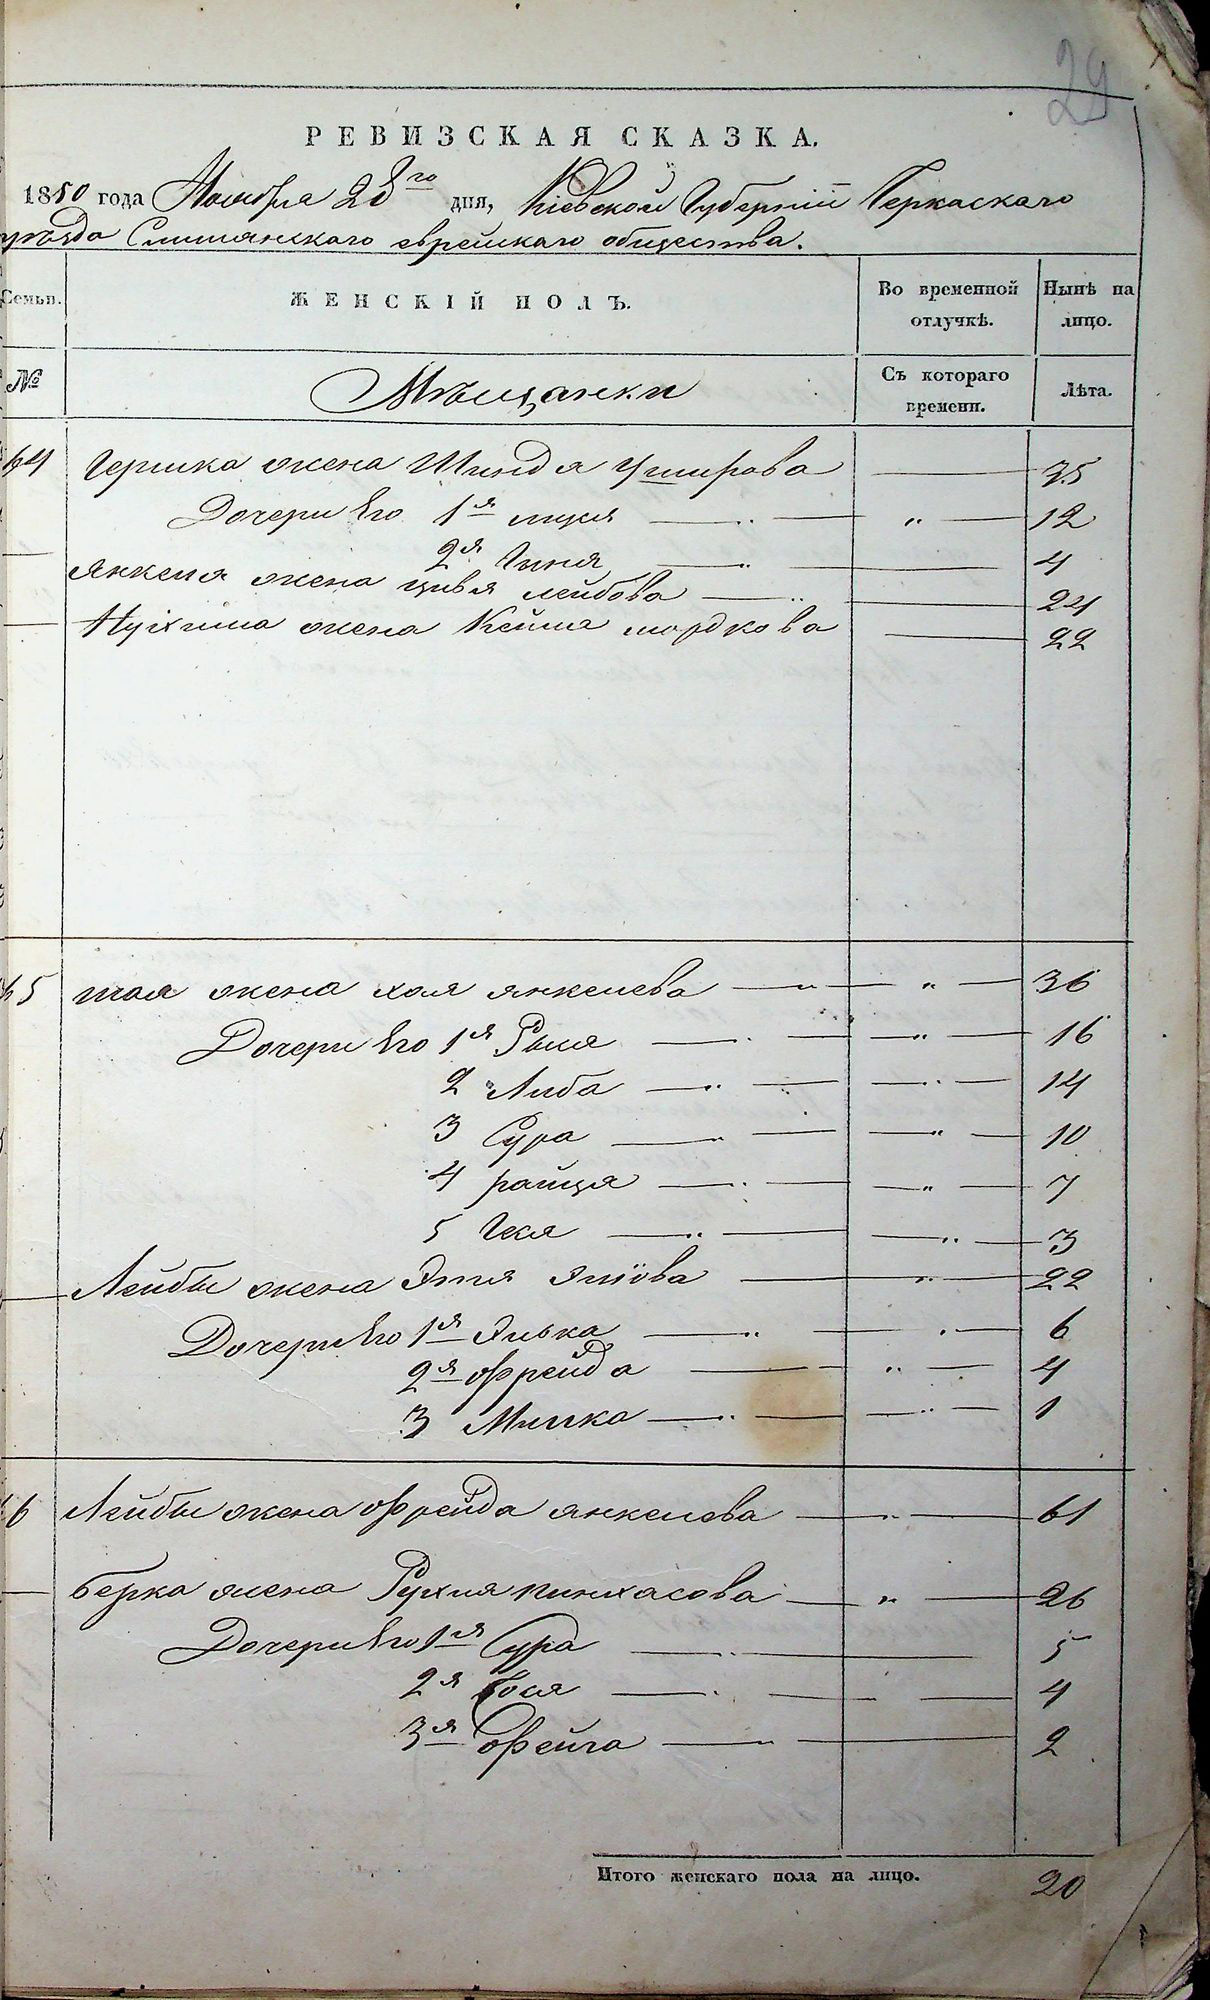 29
РЕВИЗСКАЯ СКАЗКА.
1850 года Ноября 28го дня, Кіевской Губерніи Черкаскаго
уѣзда Смилянскаго еврейскаго общества.
Семьи. ЖЕНСКІЙ ПОЛЪ. Во временной отлучкѣ. Нынѣ на лицо.
№ Мѣщанки Съ котораго времени. Лѣта.
64 Гершка жена Шиндя Уширова 35
Дочери Его 1я " 12
2я Гиня " 4
Янкеля жена Цивя Лейбова " 24
Нухима жена Кейля мордкова 22
65 жена хая янкелева " " 36
Дочери Его 1я Рыся " " 16
2 Либа " " 14
3 Сура " " 10
4 райця " " 7
5 " " 3
Лейбы жена Этя " 22
Дочери Его 1я Элька " " 6
2я Фрейда " 4
3 Милка " " 1
6 Лейбы жена Фрейда янкелева " 61
берка жена Рухля пинхасова " 26
Дочери Его 1я Сура " 5
2я Бося " 4
3я Фейга " 2
Итого женскаго пола на лицо. 20